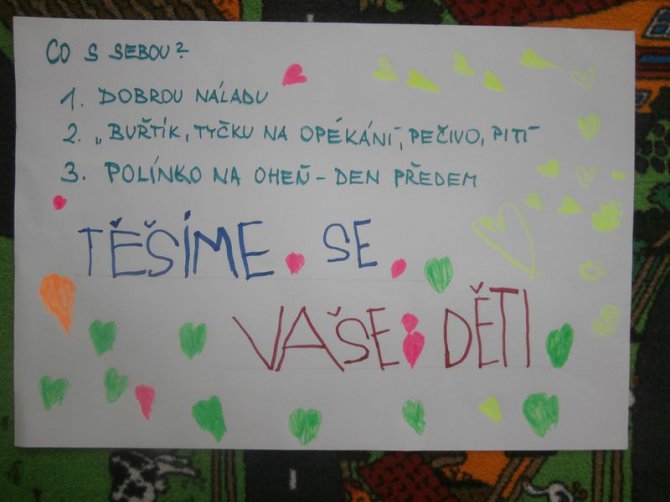 CO S SEBOU?
1. DOBROU NÁLADU
2. „BUŘTÍK, TYČKU NA OPÉKÁNÍ, PEČIVO, PITÍ
3. POLÍNKO NA OHEŇ - DEN PŘEDEM
TĚŠÍME SE
VAŠE DĚTI